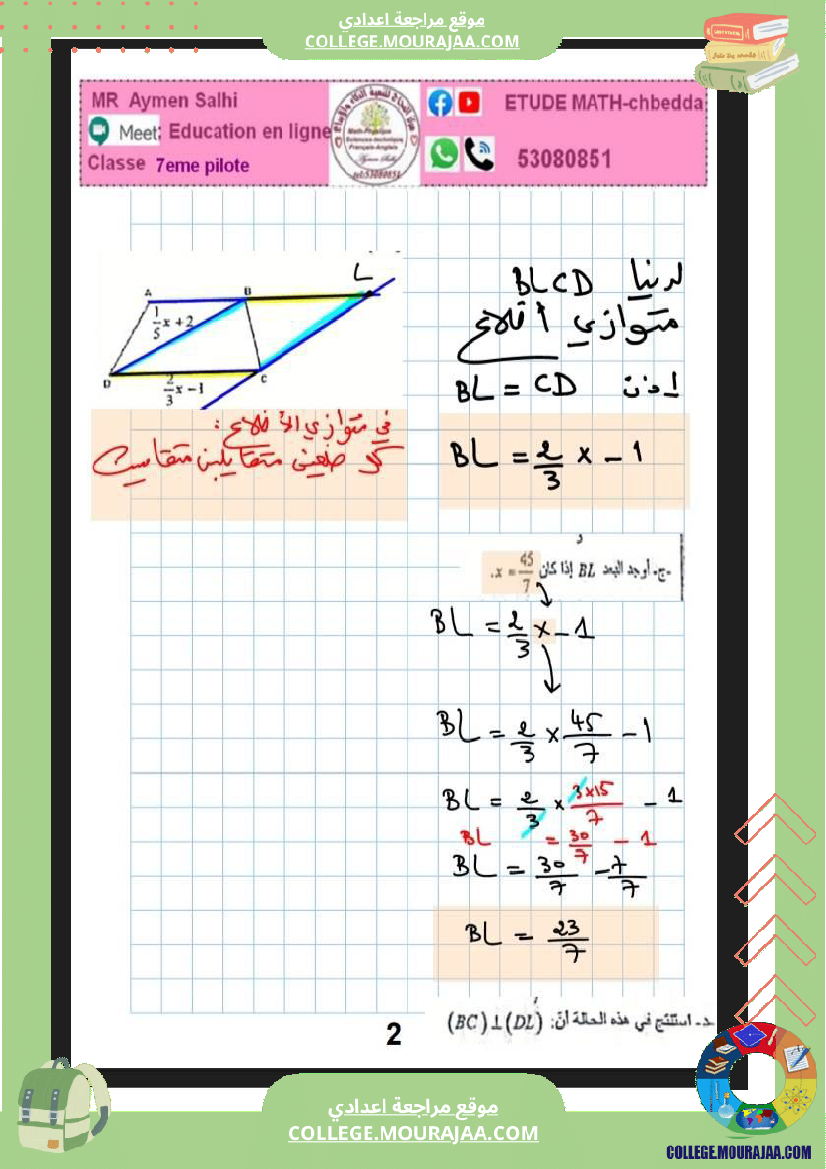 موقع مراجعة اعدادي
COLLEGE.MOURAJAA.COM
MR Aymen Salhi
Meet: Education en ligne
Classe 7eme pilote
ETUDE MATH-chbedda
53080851
لدينا BLCD
متوازي أضلاع
إذن BL = CD
BL = 2/3 x - 1
A B L
1/5 x + 2
D C
2/3 x - 1
في متوازي الأضلاع :
كل ضلعين متقابلين متقايسان
ج- أوجد البعد BL إذا كان x = 45/7.
BL = 2/3 x - 1
BL = 2/3 × 45/7 - 1
BL = 2/3 × 3×15/7 - 1
BL = 30/7 - 1
BL = 30/7 - 7/7
BL = 23/7
د- استنتج في هذه الحالة أنّ: (BC)⊥(DL)
2
موقع مراجعة اعدادي
COLLEGE.MOURAJAA.COM
COLLEGE.MOURAJAA.COM